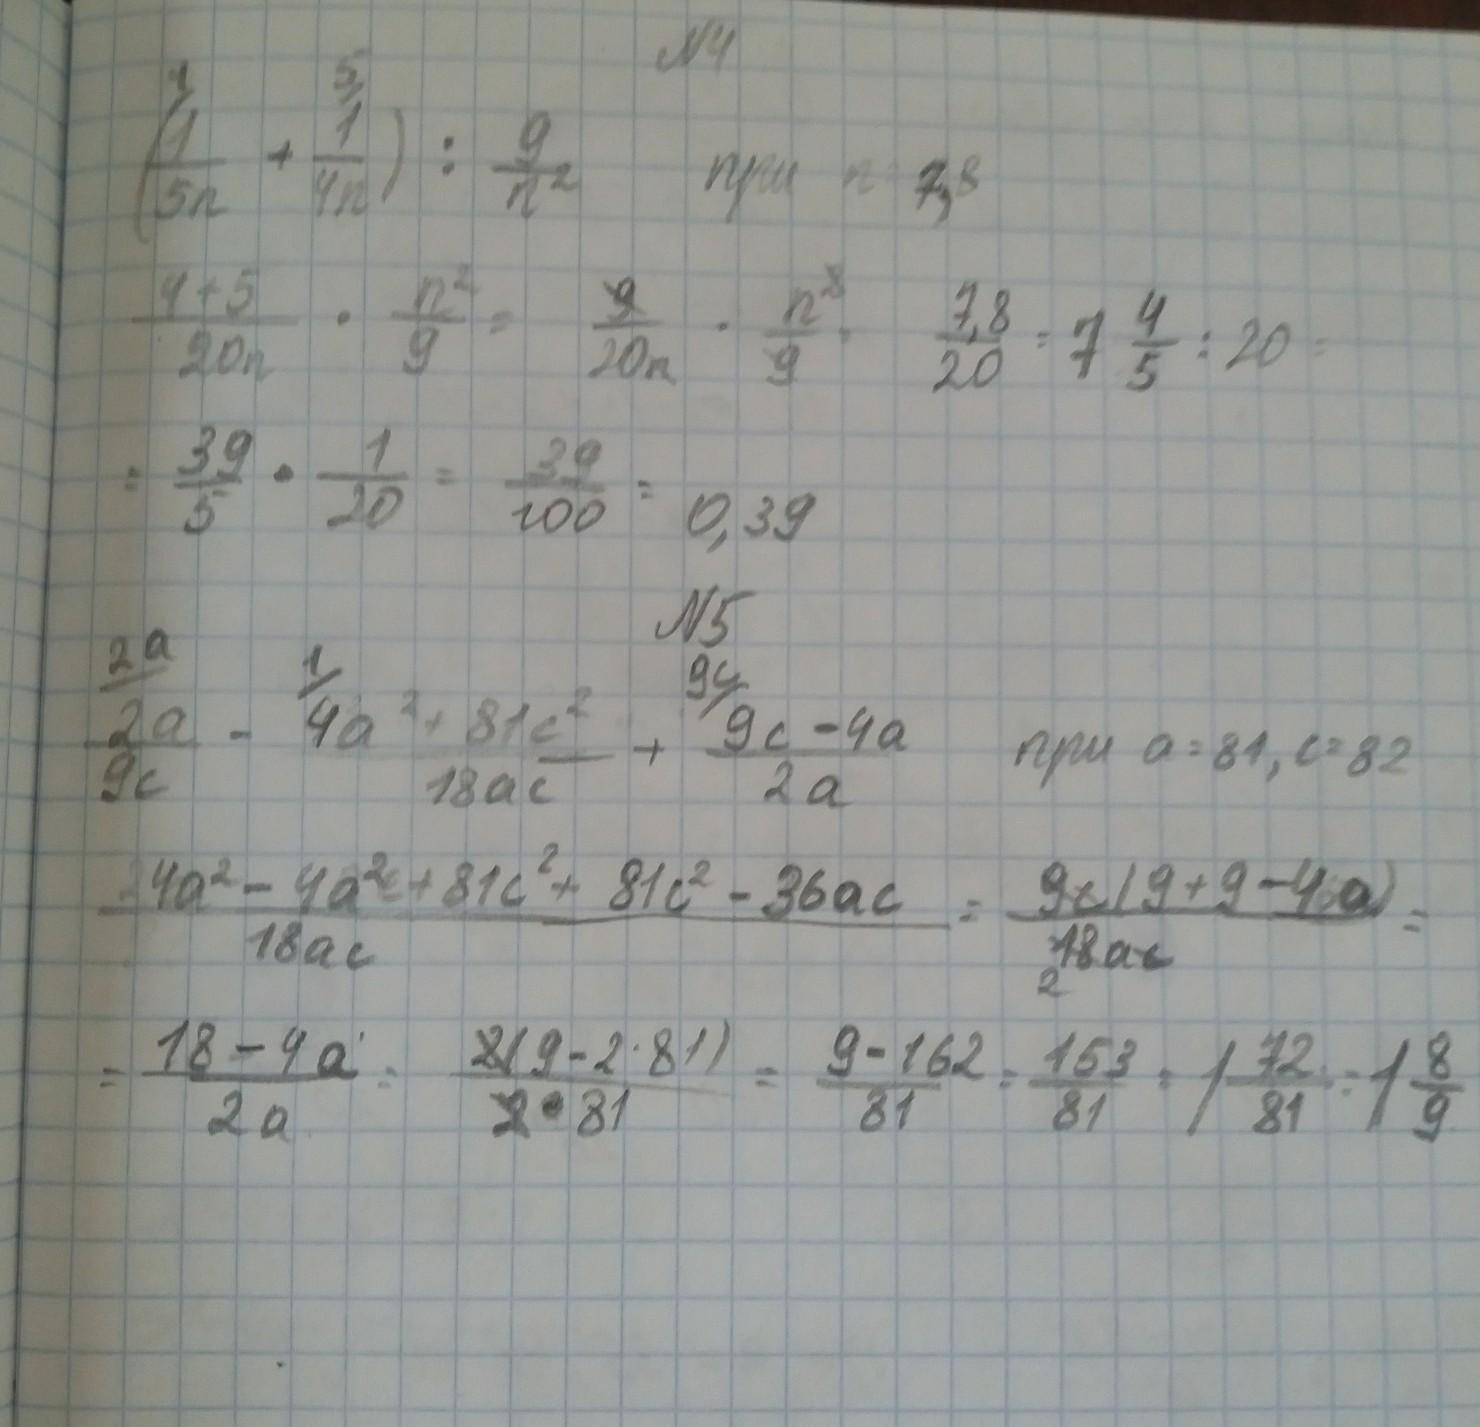 N4
(1/5n + 1/4n) : 9/n² при n = 7,8
(4+5)/20n · n²/9 = 9/20n · n²/9 = 7,8/20 = 7 4/5 : 20 =
= 39/5 · 1/20 = 39/100 = 0,39
N5
2a/9c - (4a² + 81c²)/18ac + (9c - 4a)/2a при a = 81, c = 82
(4a² - 4a² + 81c² + 81c² - 36ac)/18ac = 9c(9 + 9 - 4a)/18ac =
= (18 - 4a)/2a = 2(9 - 2·81)/2·81 = (9 - 162)/81 = 153/81 = 1 72/81 = 1 8/9